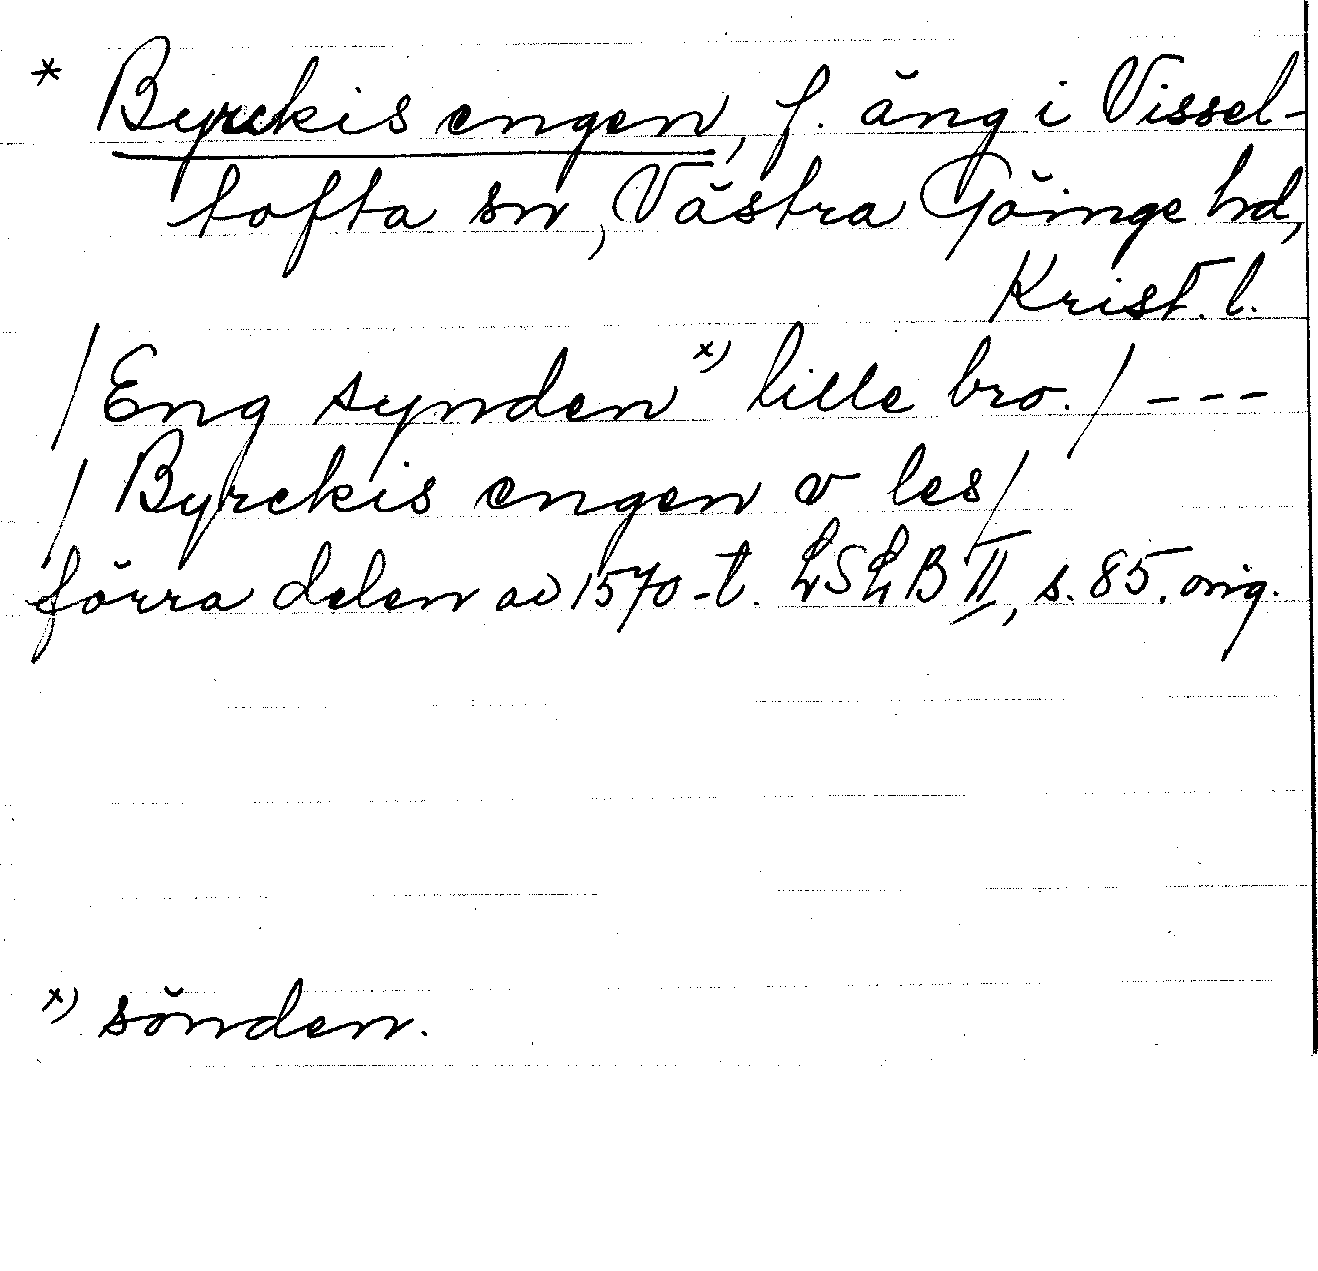 * Byrckis engen, f. äng i Vissel-
tofta sn, Västra Göinge hd,
Krist. l.
/ Eng synden x) lille bro. / - - -
/ Byrckis engen v les /
förra delen av 1570-t. LSLB II, s. 85. orig.
x) sönden.